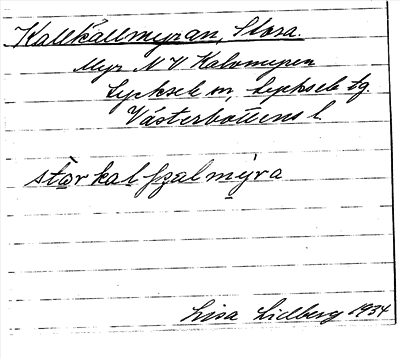 Kallkällmyran, Stora.
Myr N V Kalvmyren
Lycksele sn, Lycksele tg.
Västerbottens l.
stạr kal ʃẹal mỵra
Lisa Lidberg 1934